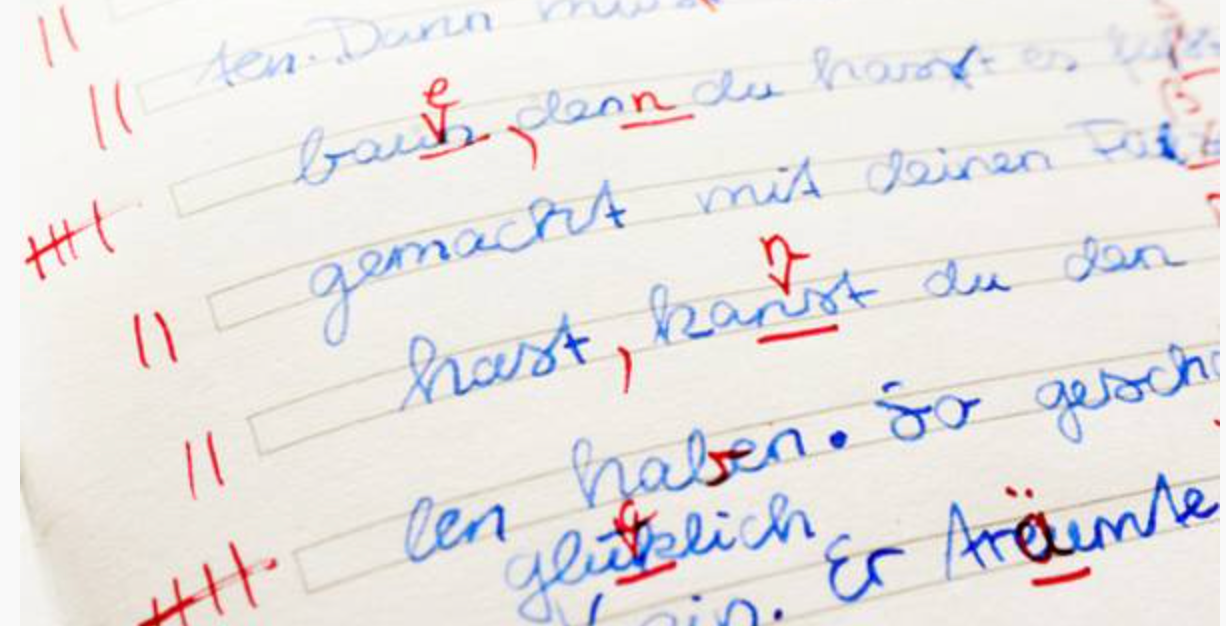 ten. Dann
baun, denn du hast es
gemacht mit deinen
hast, kanst du den
len haben. So gesch
glüklich
ein. Er träumte